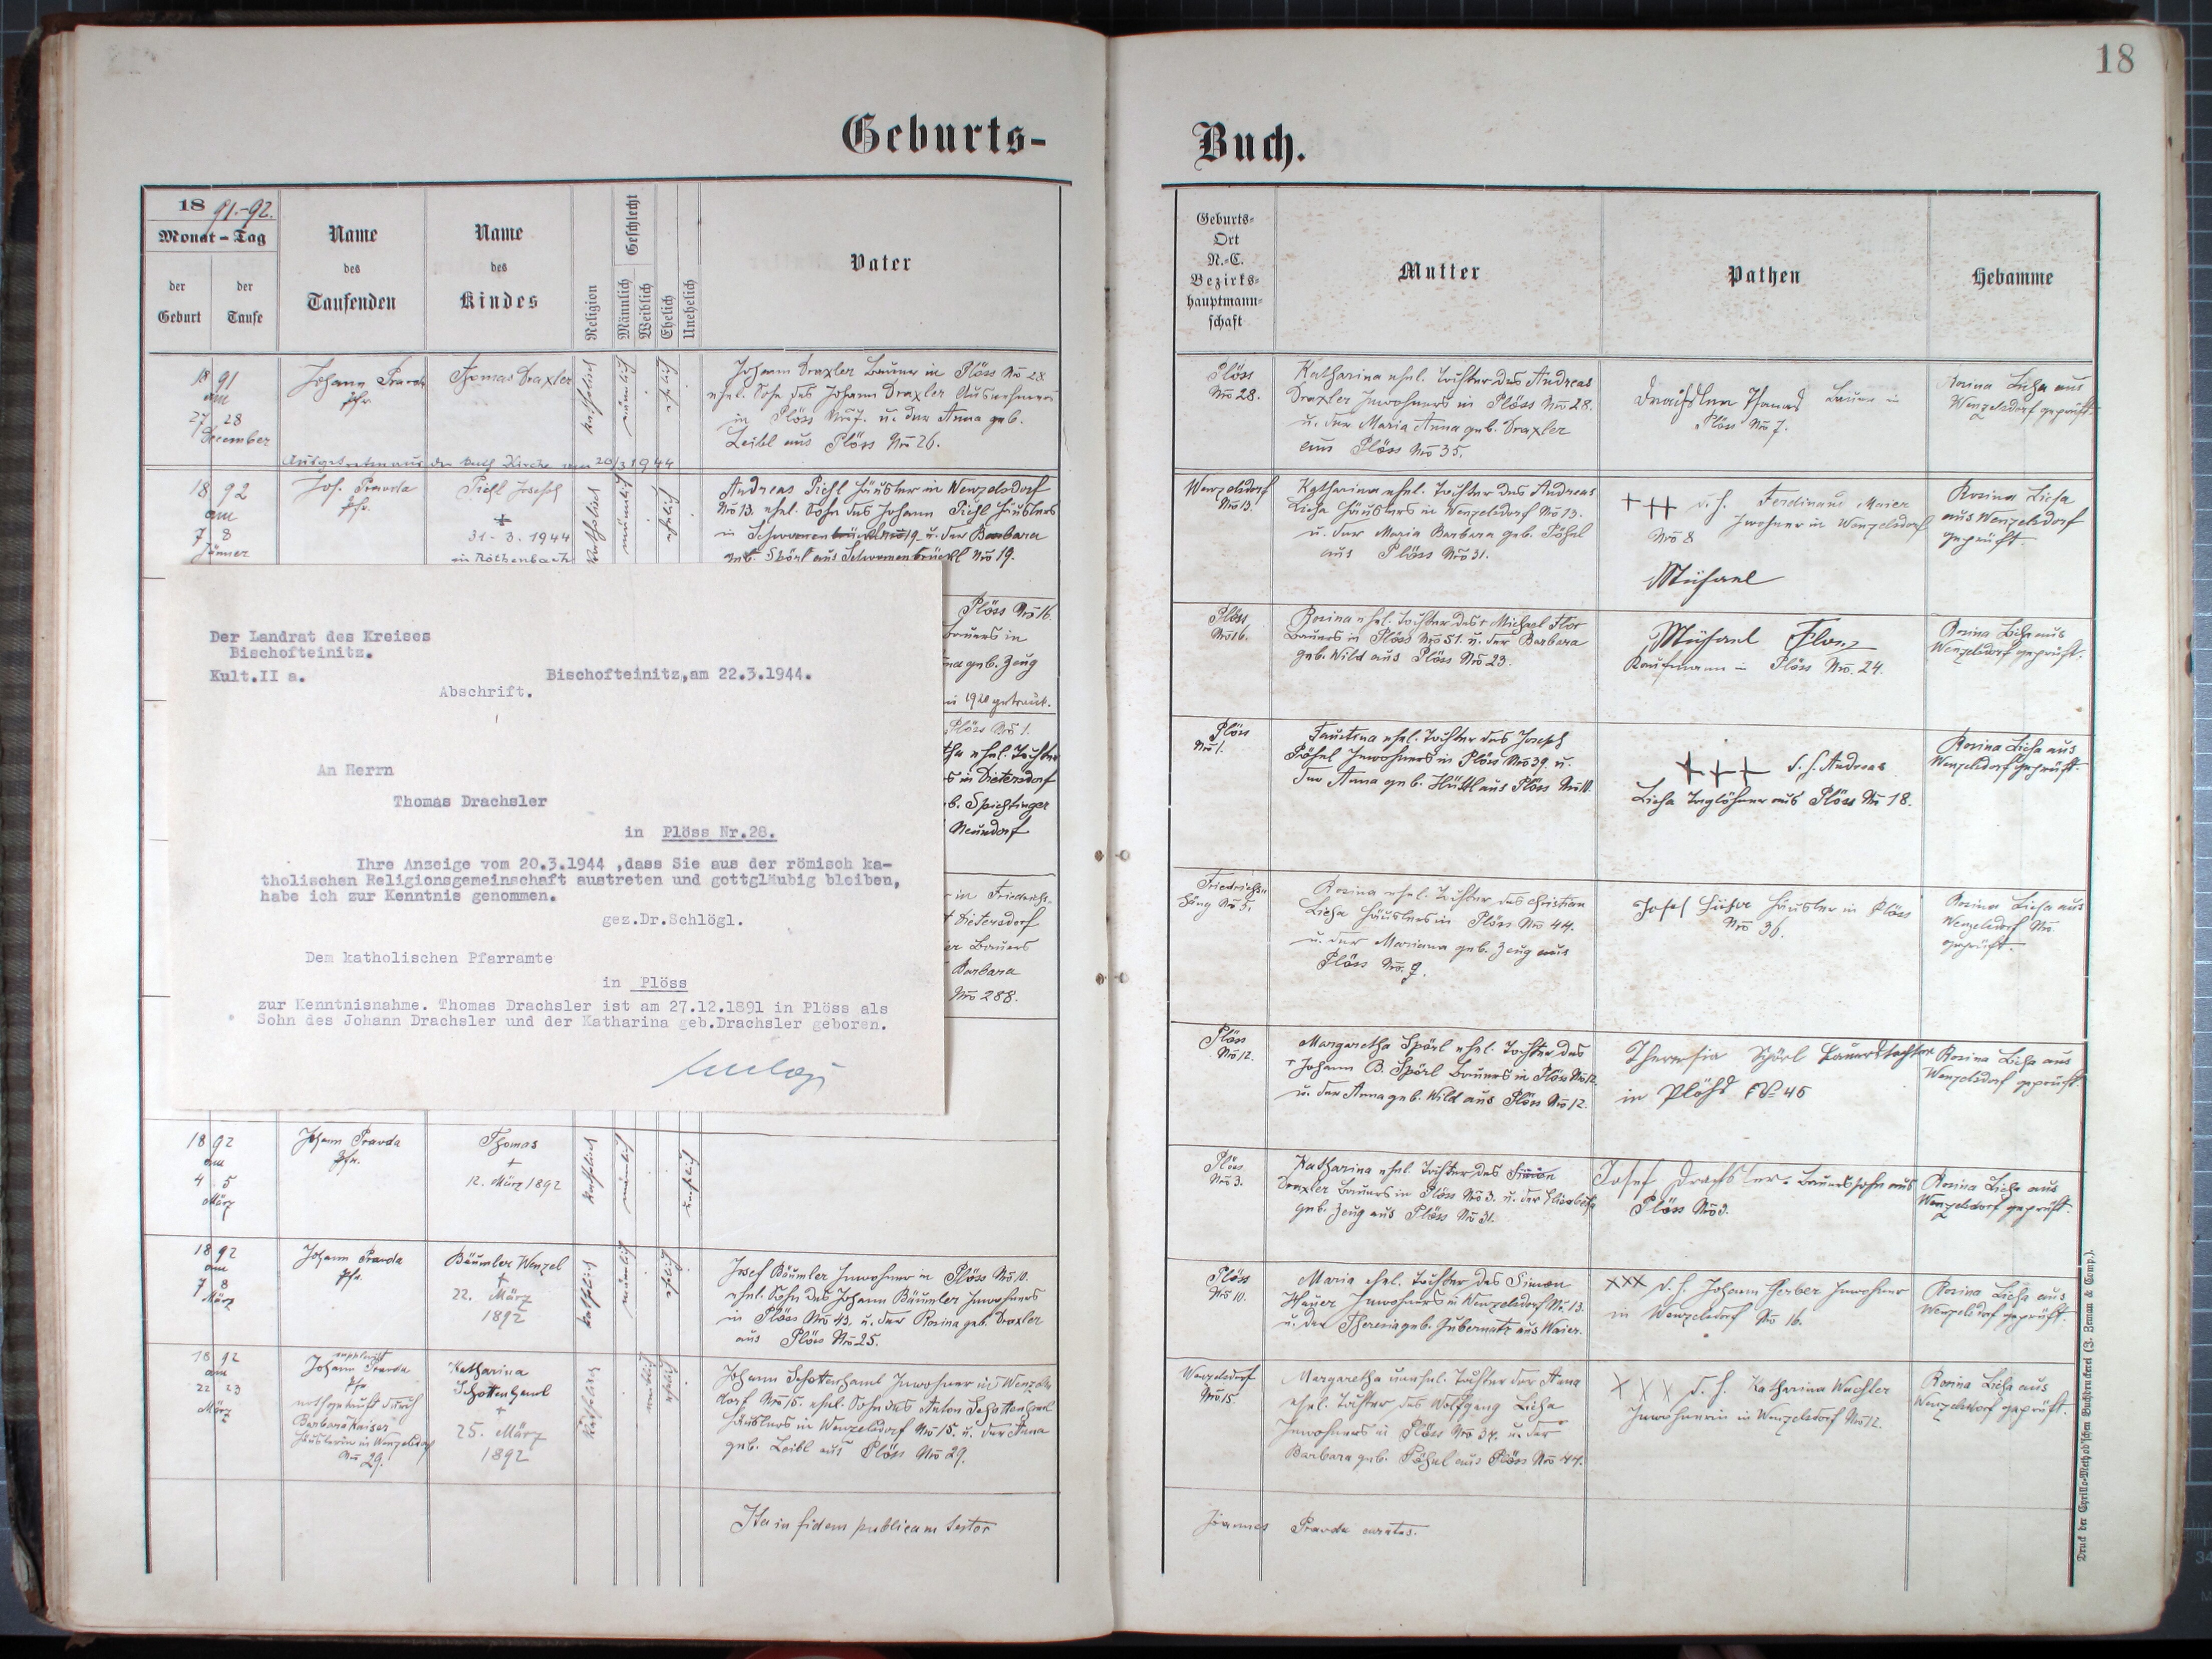 18
Geburts-
Buch.
18 91.-92.
Monat - Tag
der Geburt
der Taufe
Name
des
Taufenden
Name
des
Kindes
Religion
Geschlecht
Männlich
Weiblich
Ehelich
Unehelich
Vater
Geburts-
Ort
N.-C.
Bezirks-
hauptmann-
schaft
Mutter
Pathen
Hebamme
18 91
am
27 28
December
Johann Pravda
Pfr.
Thomas Draxler
katholisch
männlich
ehelich
Johann Draxler Bauer in Plöss No 28
ehel. Sohn des Johann Draxler Ausnehmers
in Plöss No 7. u. der Anna geb.
Leibl aus Plöss No 26.
Ausgetreten aus der kath Kirche am 20/3 1944
Plöss
No 28.
Katharina ehel. Tochter des Andreas
Draxler Inwohners in Plöss No 28.
u. der Maria Anna geb. Draxler
aus Plöss No 35.
Thomas Bauer in
Plöss No 7.
Rosina Licha aus
Wenzelsdorf geprüft.
18 92
am
7 8
Jänner
Joh. Pravda
Pfr.
Pichl Joseph
+
31-3.1944
in Röthenbach
katholisch
männlich
ehelich
Andreas Pichl Häusler in Wenzelsdorf
No 13. ehel. Sohn des Johann Pichl Häuslers
in Schwanenbrückl No 19 u. der Barbara
geb. Spörl aus Schwanenbrückl No 19.
Wenzelsdorf
No 13.
Katharina ehel. Tochter des Andreas
Licha Häuslers in Wenzelsdorf No 13.
u. der Maria Barbara geb. Pöhnl
aus Plöss No 31.
+++ d. h. Ferdinand Maier
Inwohner in Wenzelsdorf
No 8
Rosina Licha
aus Wenzelsdorf
geprüft.
Michael
Plöss No 16.
Bauers in
geb. Zeug
in 1920 getraut.
Plöss
No 16.
Rosina ehel. Tochter des + Michael Flor
Bauers in Plöss No 51. u. der Barbara
geb. Wild aus Plöss No 23.
Michael Flor
Kaufmann in Plöss No. 24.
Rosina Licha aus
Wenzelsdorf geprüft.
Plöss No 1.
ehel. Tochter
in Dietersdorf
b. Spichtinger
Neudorf
Plöss
No 1.
Faustina ehel. Tochter des Joseph
Pöhnl Inwohners in Plöss No 39. u.
der Anna geb. Hüttl aus Plöss No 10.
+++ d. h. Andreas
Licha Taglöhner aus Plöss No 18.
Rosina Licha aus
Wenzelsdorf geprüft.
in Friedrichs-
Dietersdorf
Bauers
Barbara
No 288.
Friedrichs-
häng No 5.
Rosina ehel. Tochter des Christian
Licha Häuslers in Plöss No 44.
u. der Mariana geb. Zeug aus
Plöss No. 9.
Josef Häusler in Plöss
No 36.
Rosina Licha aus
Wenzelsdorf No.
geprüft.
Plöss
No 12.
Margaretha Spörl ehel. Tochter des
+ Johann B. Spörl Bauers in Plöss No 12.
u. der Anna geb. Wild aus Plöss No 12.
Theresia Spörl Bauerstochter
in Plöhs No 46
Rosina Licha aus
Wenzelsdorf geprüft.
Der Landrat des Kreises
Bischofteinitz.
Kult.II a.
Bischofteinitz,am 22.3.1944.
Abschrift.
An Herrn
Thomas Drachsler
in Plöss Nr.28.
Ihre Anzeige vom 20.3.1944 ,dass Sie aus der römisch ka-
tholischen Religionsgemeinschaft austreten und gottgläubig bleiben,
habe ich zur Kenntnis genommen.
gez.Dr.Schlögl.
Dem katholischen Pfarramte
in Plöss
zur Kenntnisnahme. Thomas Drachsler ist am 27.12.1891 in Plöss als
Sohn des Johann Drachsler und der Katharina geb.Drachsler geboren.
18 92
am
4 5
März
Johann Pravda
Pfr.
Thomas
+
12. März 1892
katholisch
männlich
unehelich
Plöss
No 3.
Katharina ehel. Tochter des Simon
Draxler Bauers in Plöss No 3. u. der Elisabeth
geb. Zeug aus Plöss No 31.
Josef Drachsler. Bauerssohn aus
Plöss No 3.
Rosina Licha aus
Wenzelsdorf geprüft.
18 92
am
7 8
März
Johann Pravda
Pfr.
Bäumler Wenzel
+
22. März
1892
katholisch
männlich
ehelich
Josef Bäumler Inwohner in Plöss No 10.
ehel. Sohn des Johann Bäumler Inwohners
in Plöss No 43. u. der Rosina geb. Draxler
aus Plöss No 25.
Plöss
No 10.
Maria ehel. Tochter des Simon
Hauer Inwohners in Wenzelsdorf No. 13.
u. der Theresia geb. Gubernatz aus Waier.
XXX d. h. Johann Gerber Inwohner
in Wenzelsdorf No 16.
Rosina Licha aus
Wenzelsdorf geprüft.
18 92
am
22 23
März
supplevit
Johann Pravda
Pfr
nothgetauft durch
Barbara Kaiser
Häuslerin in Wenzelsdorf
No 29.
Katharina
Schottenhaml
+
25. März
1892
katholisch
weiblich
ehelich
Johann Schottenhaml Inwohner in Wenzels-
dorf No 15. ehel. Sohn des Anton Schottenhaml
Häuslers in Wenzelsdorf No 15. u. der Anna
geb. Leibl aus Plöss No 29.
Wenzelsdorf
No 15.
Margaretha unehel. Tochter der Anna
ehel. Tochter des Wolfgang Licha
Inwohners in Plöss No 37. u. der
Barbara geb. Pöhnl aus Plöss No 44.
X X X d. h. Katharina Wachter
Inwohnerin in Wenzelsdorf No 12.
Rosina Licha aus
Wenzelsdorf geprüft.
Ita in fidem publicam testor
Joannes Pravda curatus.
Druck der Cyrillo-Method'schen Buchdruckerei (J. Zeman & Comp.).